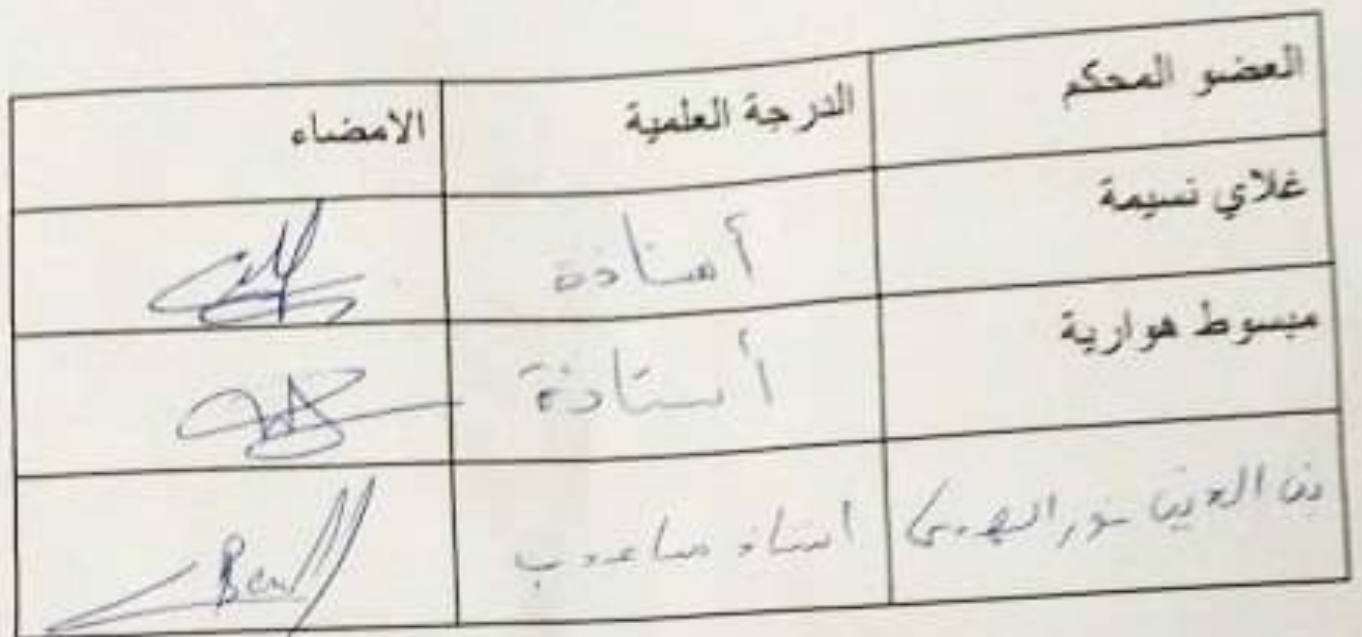 العضو المحكم الدرجة العلمية الامضاء
غلاي نسيمة أستاذة
مبسوط هوارية أستاذة
بن الدين نور الهدى استاذ مساعد ب
Ben